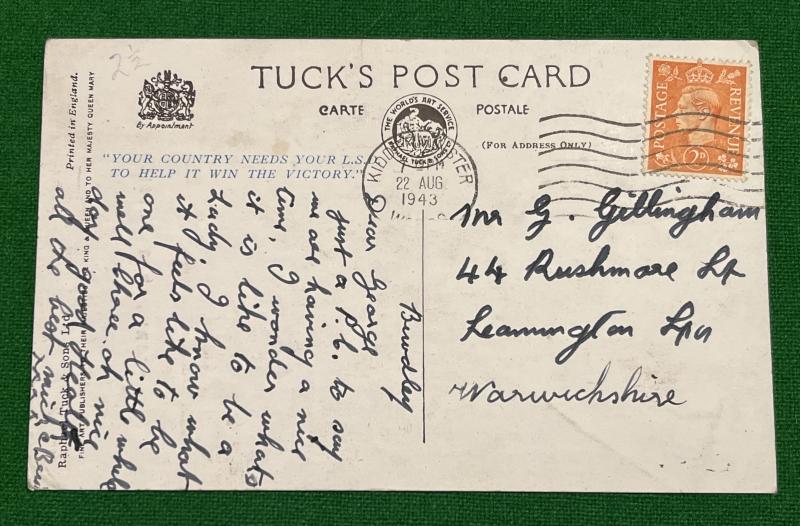 2½
TUCK'S POST CARD
CARTE POSTALE
By Appointment
THE WORLD'S ART SERVICE
RAPHAEL TUCK & SONS LD
(FOR ADDRESS ONLY)
"YOUR COUNTRY NEEDS YOUR L.S.D.
TO HELP IT WIN THE VICTORY."
KIDDERMINSTER
22 AUG
1943
POSTAGE REVENUE
2D
Printed in England.
Raphael Tuck & Sons Ltd
FINE ART PUBLISHERS TO THEIR MAJESTIES THE KING & QUEEN AND TO HER MAJESTY QUEEN MARY
Bewdley
Dear George
just a p.c. to say
we are having a nice
time, I wonder what
it is like to be a
Lady, I know what
it feels like to be
one for a little while
well three nice
all the best
Mr G. Gillingham
44 Rushmore St
Leamington Spa
Warwickshire